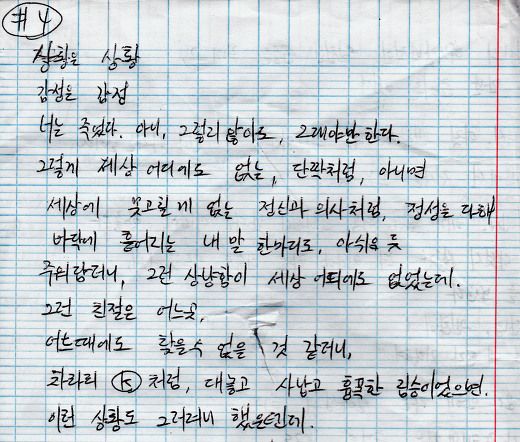 #4
상황은 상황
감정은 감정
너는 죽었다. 아니, 그럴리 않아도, 그래야만 한다.
그렇게 세상 어디에도 없는, 단짝처럼, 아니면
세상에 못고칠게 없는 정신과 의사처럼, 정성을 다해
바닥에 흩어지는 내 말 한마디도, 아쉬운 듯
주워담더니, 그런 상냥함이 세상 어디에도 없었는데.
그런 친절은 어느곳,
어느때에도 찾을수 없을 것 같더니,
차라리 K 처럼, 대놓고 사납고 흉폭한 짐승이었으면.
이런 상황도 그러려니 했을텐데.